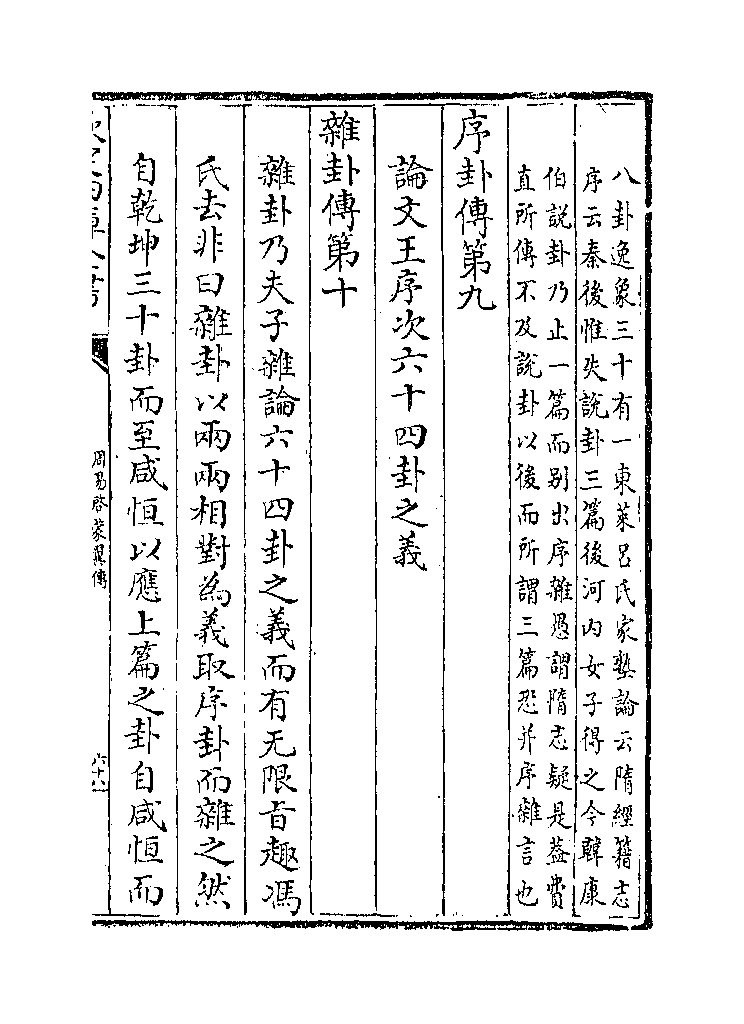 八卦逸象三十有一東萊呂氏家塾論云隋經籍志
序云秦後惟失說卦三篇後河内女子得之今韓康
伯說卦乃止一篇而别出序雜愚謂隋志疑是葢費
直所傳不及說卦以後而所謂三篇恐并序雜言也
序卦傳第九
論文王序次六十四卦之義
雜卦傳第十
雜卦乃夫子雜論六十四卦之義而有无限旨趣馮
氏去非曰雜卦以兩兩相對為義取序卦而雜之然
自乾坤三十卦而至咸恒以應上篇之卦自咸恒而
周易啓蒙翼傳
六十八